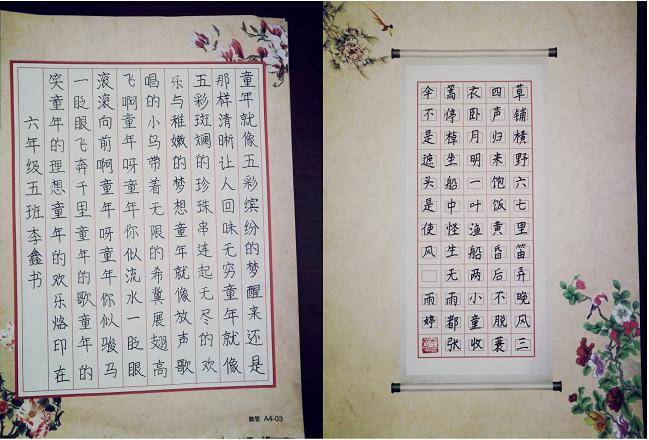 童年就像五彩缤纷的梦醒来还是
那样清晰让人回味无穷童年就像
五彩斑斓的珍珠串连起无尽的欢
乐与稚嫩的梦想童年就像放声歌
唱的小鸟带着无限的希冀展翅高
飞啊童年呀童年你似流水一眨眼
滚滚向前啊童年呀童年你似骏马
一眨眼飞奔千里童年的歌童年的
笑童年的理想童年的欢乐烙印在
六年级五班李鑫书
A4-03
草铺横野六七里笛弄晚风三
四声归来饱饭黄昏后不脱蓑
衣卧月明一叶渔船两小童收
蒿停棹坐船中怪生无雨都张
伞不是遮头是使风 雨婷